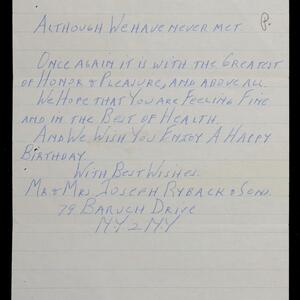 P.
ALTHOUGH WE HAVE NEVER MET.
ONCE AGAIN IT IS WITH THE GREATEST
OF HONOR & PLEASURE, AND ABOVE ALL.
WE HOPE THAT YOU ARE FEELING FINE
AND IN THE BEST OF HEALTH.
AND WE WISH YOU ENJOY A HAPPY
BIRTHDAY.
WITH BEST WISHES.
MR & MRS JOSEPH RYBACK & SONS.
79 BARUCH DRIVE
N.Y. 2 N.Y.